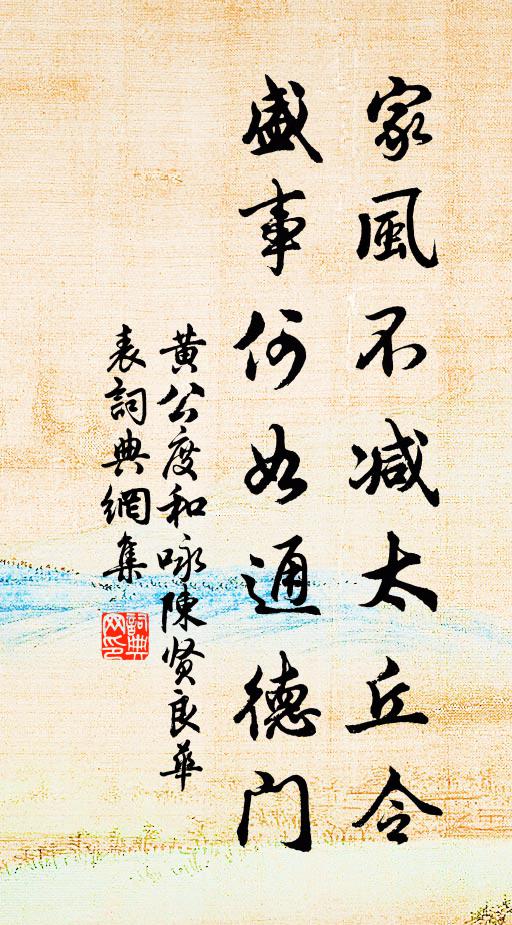 家風不减太丘令
盛事何如通德門
黄公度和咏陳贤良華
表詞典網集
詞典
网印